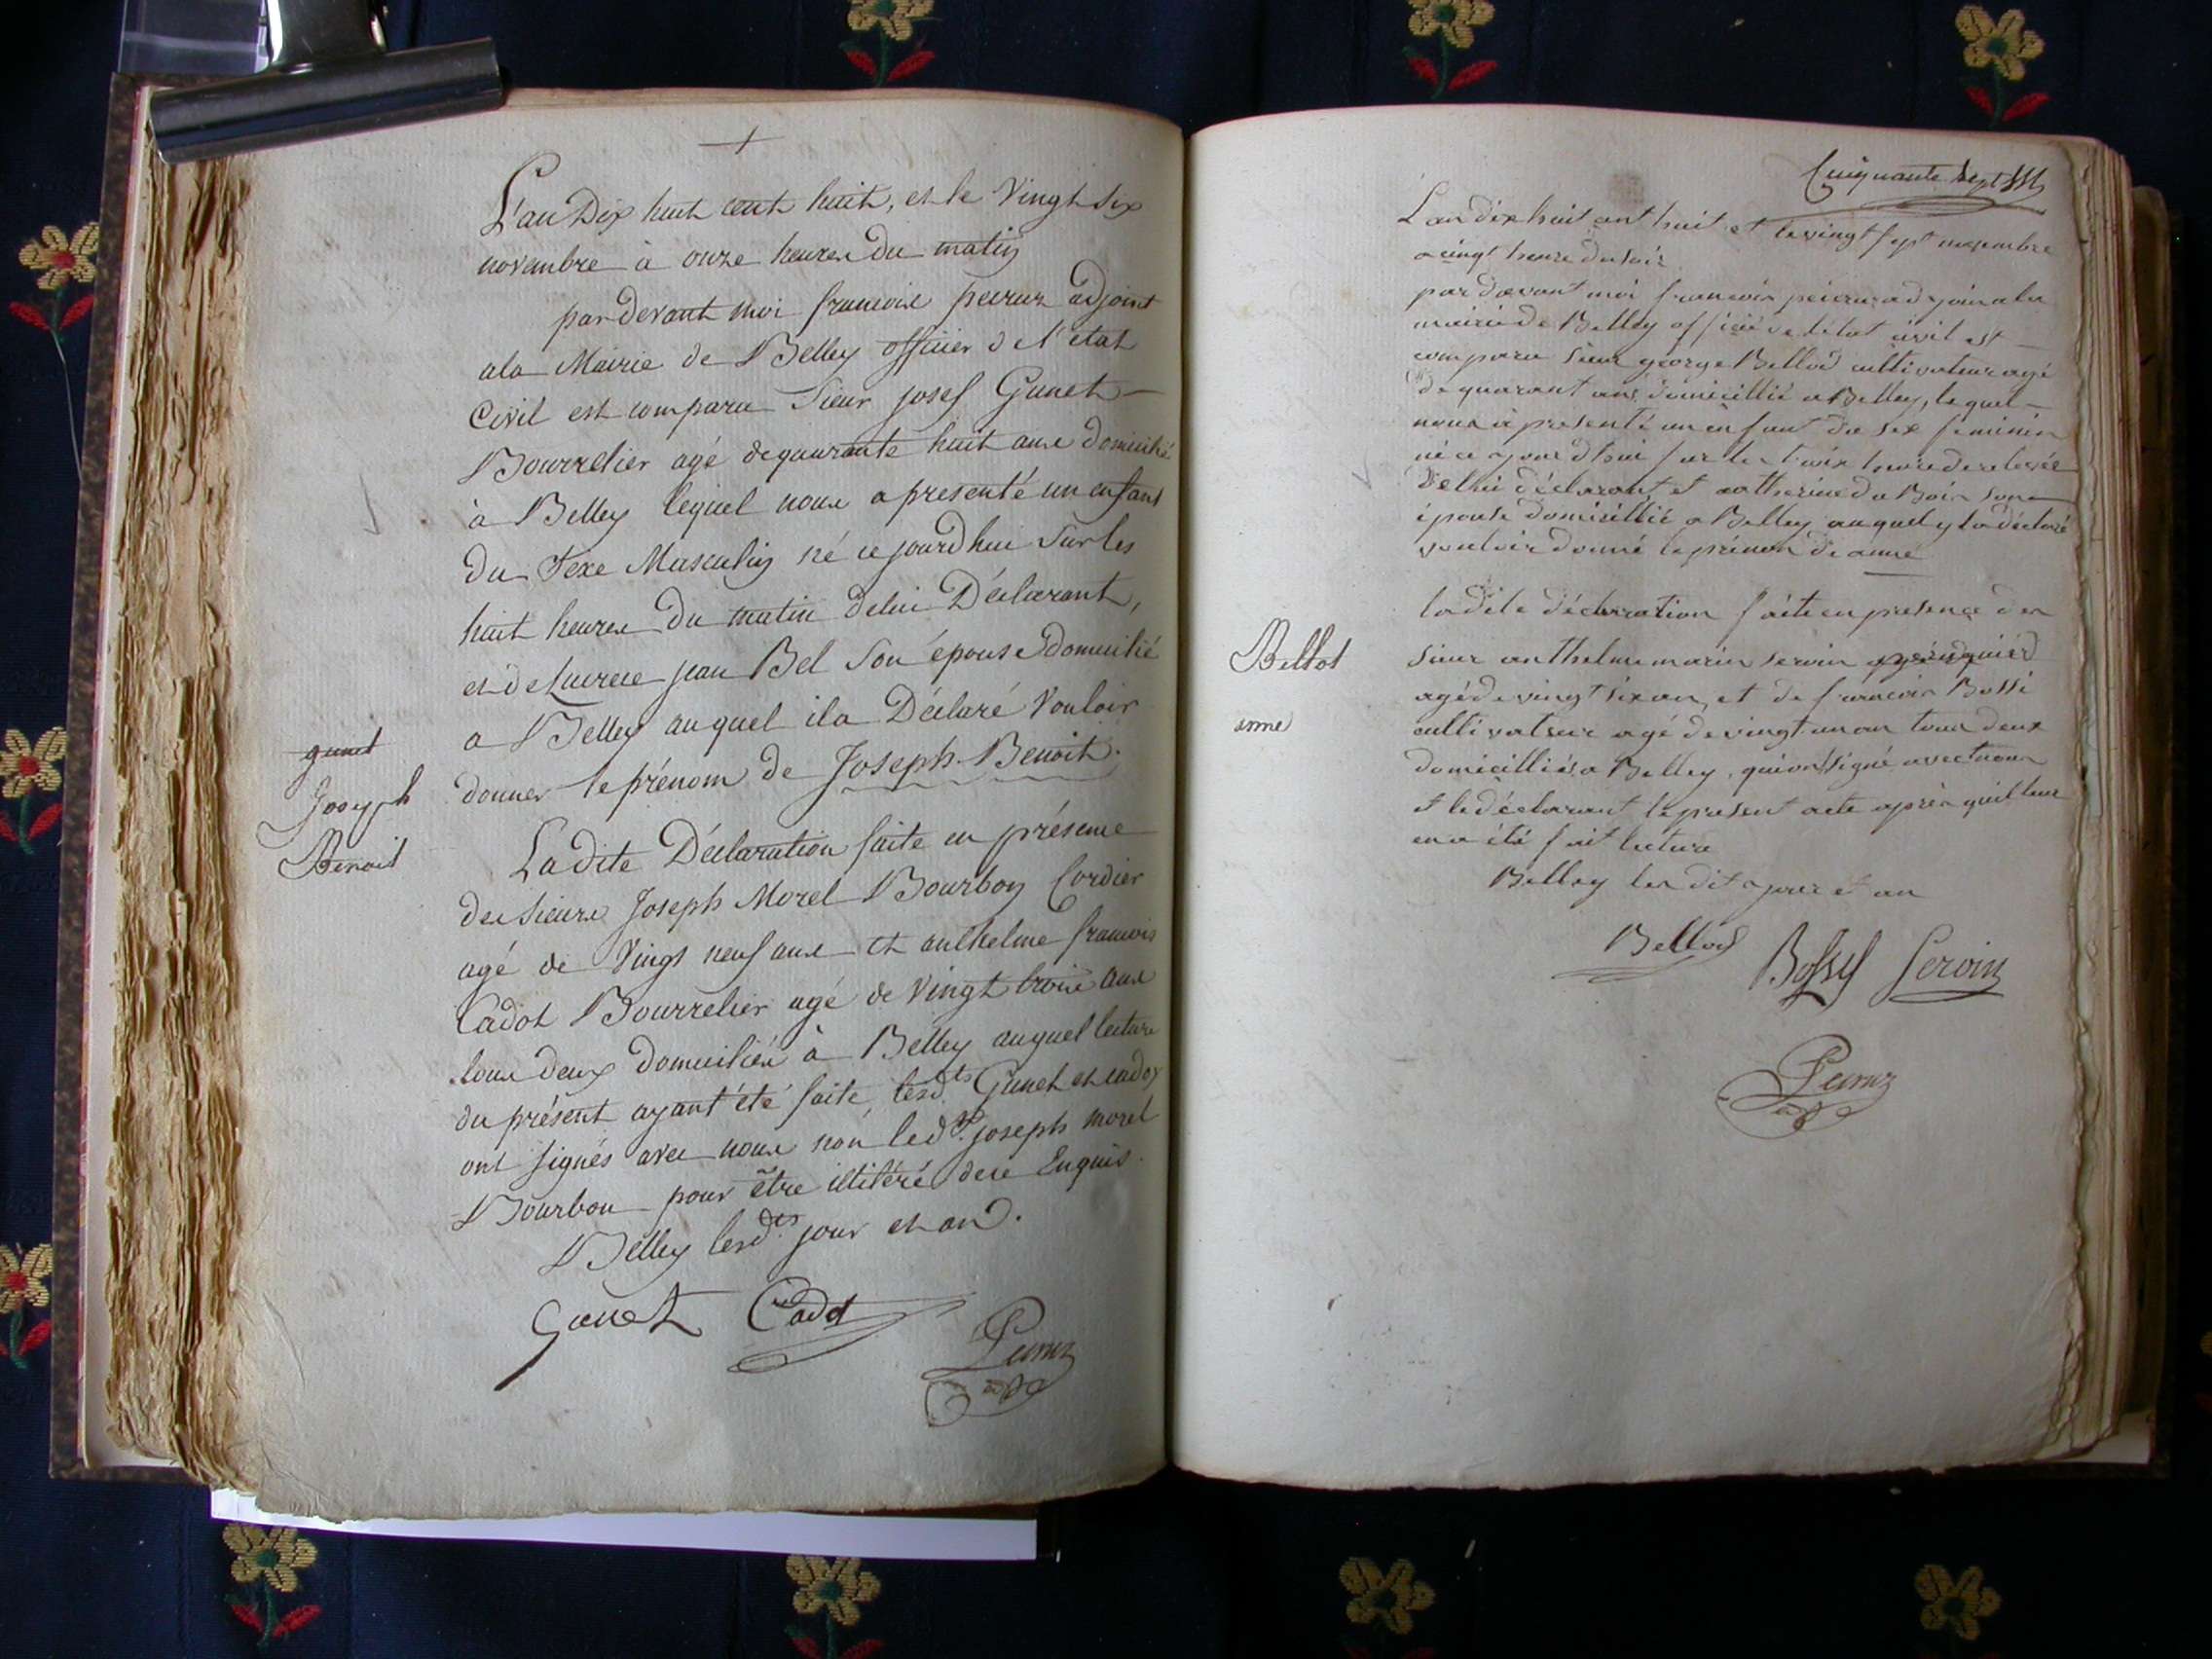 L'an Dix huit cent huit, et le Vingt six
novembre à onze heures du matin
par devant moi francois peiruz adjoint
a la Mairie de Belley officier de l'etat
Civil est comparu Sieur josef Gunet
Bourrelier agé de qaurante huit ans domicilié
à Belley lequel nous a presenté un enfant
du Sexe Masculin né ce jourd'hui sur les
huit heures du matin de lui Déclarant,
et de jean Bel son épouse domicilié
a Belley auquel il a Déclaré Vouloir
donner le prénom de Joseph-Benoit.
gunet
Joseph
Benoit
La dite Déclaration faite en présence
des sieurs Joseph Morel Bourbon Cordier
agé de Vingt neuf ans et anthelme francois
Cadot Bourrelier agé de Vingt trois ans
tous deux domiciliés à Belley auquel lecture
du présent ayant été faite, lesdts Gunet et cadot
ont signés avec nous non ledt joseph morel
Bourbon pour être illitéré de ce Enquis.
Belley lesdts jour et an.
Gunet Cadot
Peiruz
adt
Cinquante sept
L'an dix huit cent huit et le vingt sept novembre
a cinqt heure du soir
par devant moi francois peiruz adjoin a la
mairie de Belley officié de l'état civil est
comparu sieur george Bellod cultivateur agé
de quarant ans domicillié a Belley, lequel
nous à presenté un enfant du sex feminin
né ce jourd'hui sur les troix heure de relevée
de lui déclarant et catherine du Bois son
épouse domicillié a Belley auquel y la déclaré
vouloir donné le prénom de anne
Bellot
anne
ladite déclaration faite en presence des
sieur anthelme marin servin
agé de vingt six an, et de francois Bossi
cultivatsur agé de vingt un an tous deux
domicilliés a Belley, qui ont signé avec nous
et le déclarant le present acte après quil leur
en a été fait lecture
Belley les dit jour et an
Bellod
Bossy Servin
Peiruz
adt